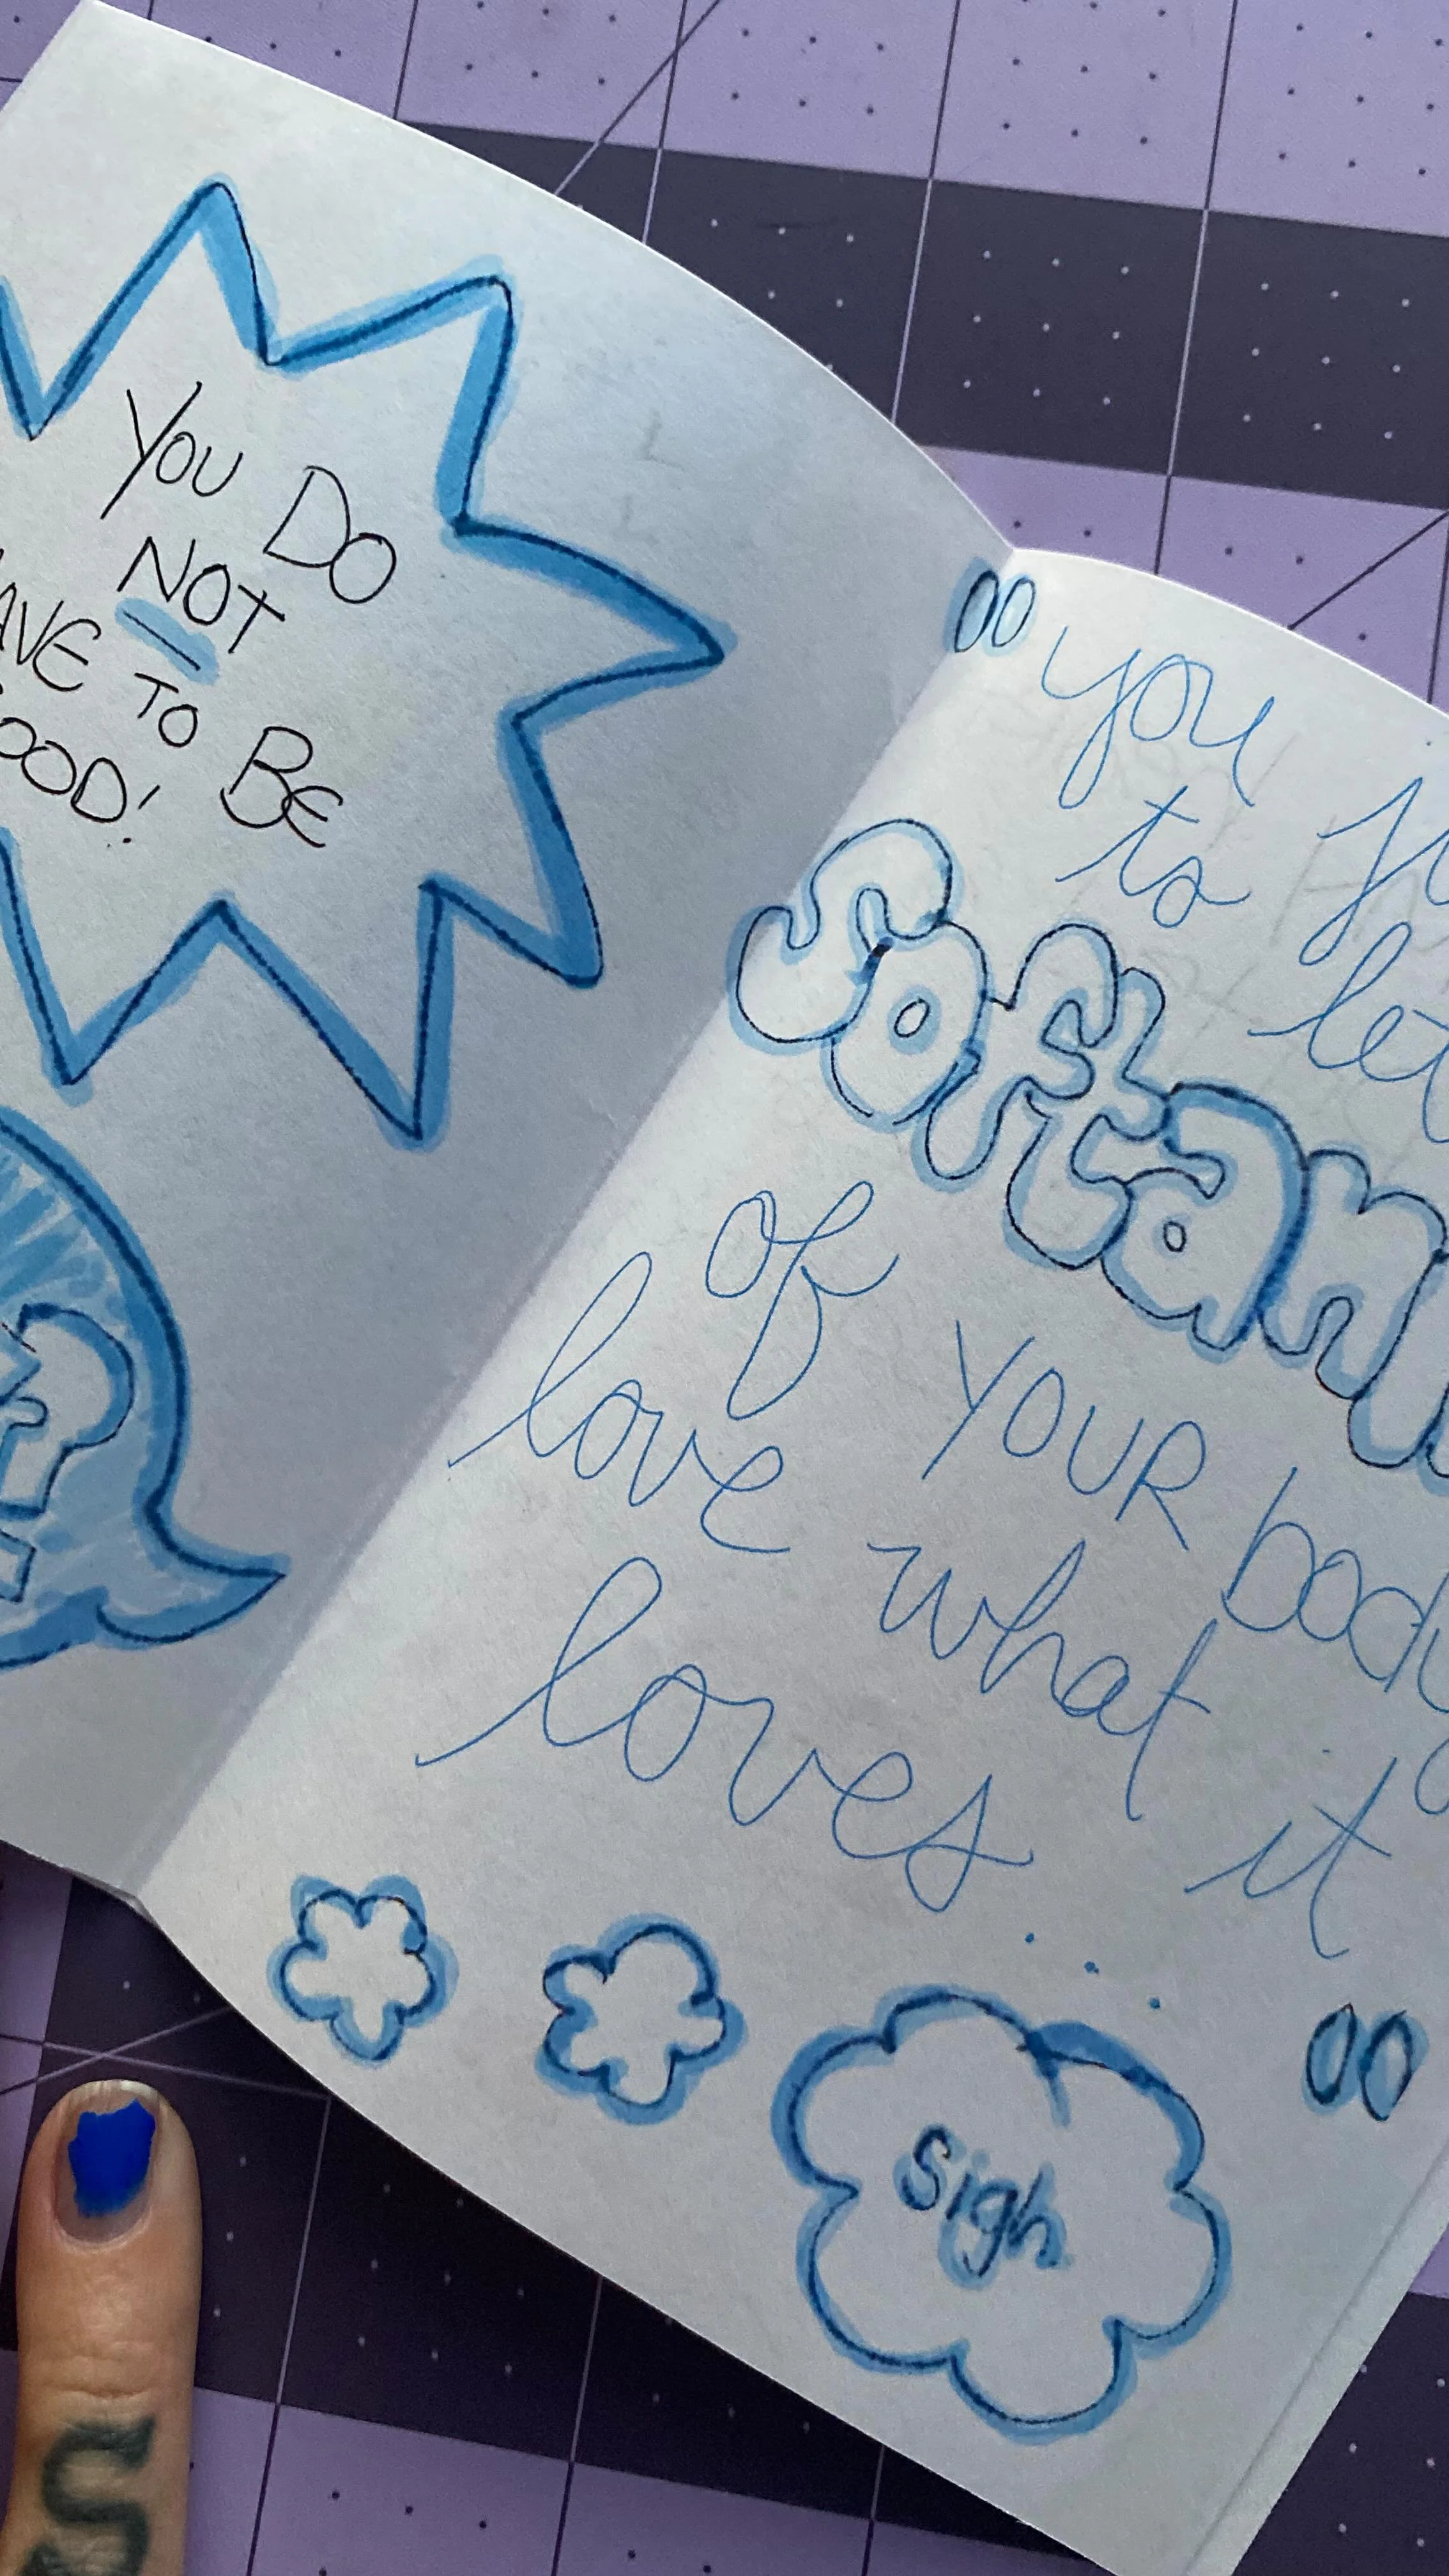 YOU DO
NOT
AVE TO BE
OOD!
"you ju
to let
Softan
of YOUR body
love what it
loves..."
sigh